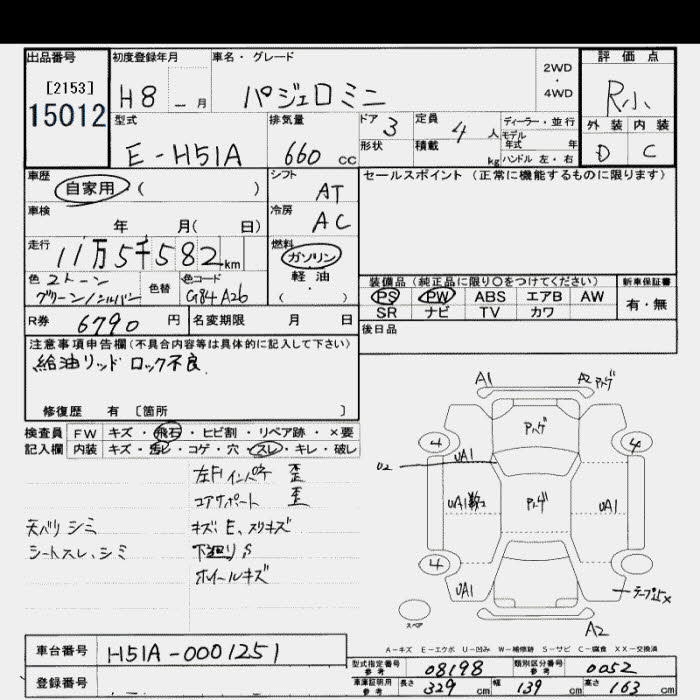 出品番号
[2153]
15012
初度登録年月
H8 — 月
車名・グレード
パジェロミニ
2WD
・
4WD
評価点
R小
外装 内装
D C
型式
E-H51A
排気量
660 cc
ドア 3
形状
定員 4 人
積載 kg
ディーラー・並行
モデル年式 年
ハンドル 左・右
車歴
自家用 ( )
シフト
AT
車検
年 月( 日)
冷房
AC
走行
11万5千582 km
燃料
ガソリン
軽油
( )
色 2トーン
グリーン/シルバー
色替
色コード
G84 A26
R券 6790 円
名変期限 月 日
セールスポイント(正常に機能するものに限ります)
装備品(純正品に限り○をつけてください)
新車保証書
PS PW ABS エアB AW
SR ナビ TV カワ
有・無
後日品
注意事項申告欄(不具合内容等は具体的に記入して下さい)
給油リッド ロック不良
修復歴 有 [箇所 ]
検査員 FW キズ・飛石・ヒビ割・リペア跡・×要
記入欄 内装 キズ・汚レ・コゲ・穴・スレ・キレ・破レ
左Fインパネ 歪
コアサポート 歪
天バリ シミ
キズ、E、スリキズ
シートスレ、シミ
下廻りS
ホイールキズ
A1
A2 アトゲ
アトゲ
4
4
U2
UA1
UA1数コ
アトゲ
UA1
4
UA1
テープ跡×
スペア
A2
A-キズ E-エクボ U-凹み W-補修跡 S-サビ C-腐食 XX-交換済
車台番号
H51A-0001251
登録番号
型式指定番号
参考
08198
類別区分番号
参考
0052
車庫証明用
参考
長さ 329 cm 幅 139 cm 高さ 163 cm